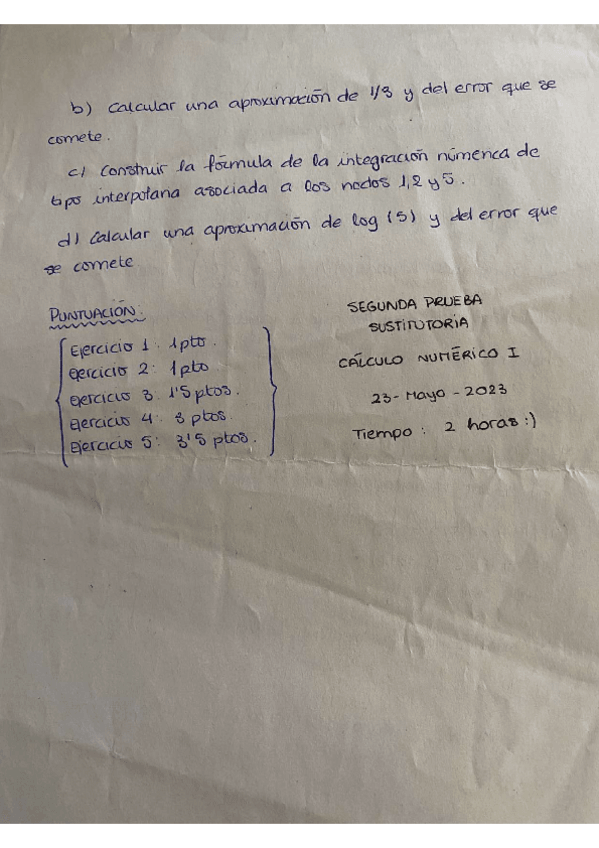 b) Calcular una aproximación de 1/3 y del error que se
comete.
c) Construir la fórmula de la integración númerica de
tipo interpolaria asociada a los nodos 1, 2 y 5.
d) Calcular una aproximación de log (5) y del error que
se comete
PUNTUACIÓN:
Ejercicio 1: 1 pto.
Ejercicio 2: 1 pto
Ejercicio 3: 1'5 ptos.
Ejercicio 4: 3 ptos.
Ejercicio 5: 3'5 ptos.
SEGUNDA PRUEBA
SUSTITUTORIA
CÁLCULO NUMÉRICO I
23-Mayo-2023
Tiempo: 2 horas :)